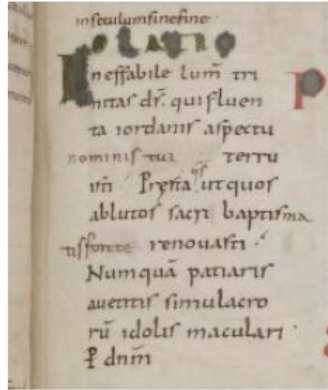 inseculumsinefine
OLATIO
Ineffabile lum̄ tri
nitas dr̄. qui fluen
ta iordanis aspectu
nominis tui terru
isti Presta qs̄ ut quos
ablutos sacri baptisma
tis fonte renovasti
Numquā patiaris
vetitis simulacro
rū idolis maculari
P dnm̄
P